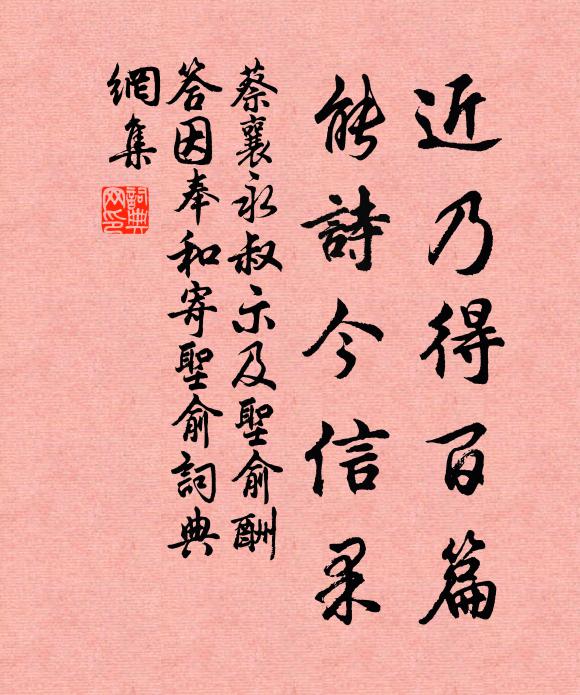 近乃得百篇
能詩今信果
蔡襄永叔示及聖俞酬
答因奉和寄聖俞詞典
網集
詞典网印